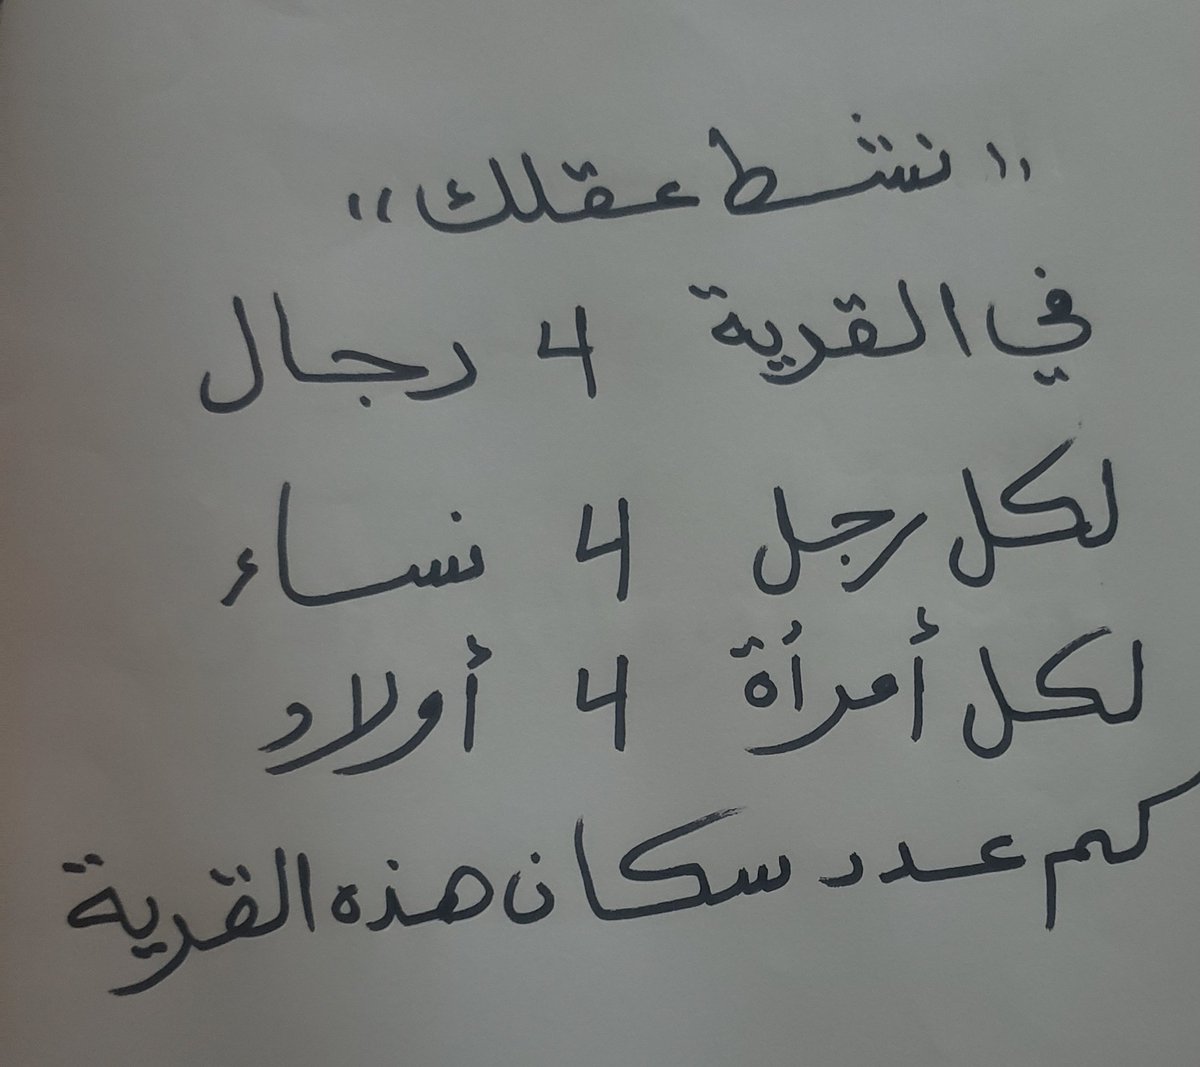 "نشط عقلك"
في القرية 4 رجال
لكل رجل 4 نساء
لكل أمرأة 4 أولاد
كم عدد سكان هذه القرية